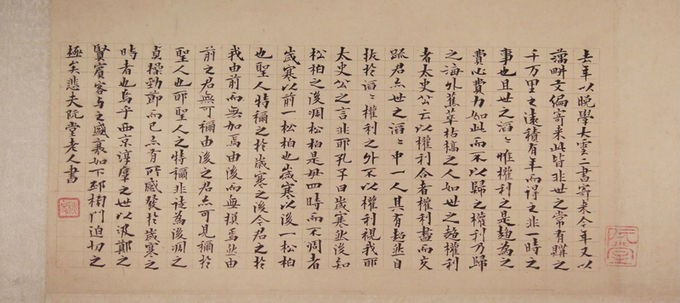 去年以晚學大雲二書寄來今年又以
藕畊文編寄來此皆非世之常有購之
千万里之遠積有年而得之非一時之
事也且世之滔〻惟權利之是趨爲之
費心費力如此而不以歸之權利乃歸
之海外蕉萃枯槁之人如世之趨權利
者太史公云以權利合者權利盡而交
踈君亦世之滔〻中一人其有超然自
拔於滔〻權利之外不以權利視我耶
太史公之言非耶孔子曰歲寒然後知
松栢之後凋松栢是毋四時而不凋者
歲寒以前一松栢也歲寒以後一松栢
也聖人特稱之於歲寒之後今君之於
我由前而無加焉由後而無損焉然由
前之君無可稱由後之君亦可見稱於
聖人也耶聖人之特稱非徒爲後凋之
貞操勁節而已亦有所感發於歲寒之
時者也烏乎西京淳厚之世以汲鄭之
賢賓客與之盛衰如下邳榜門迫切之
極矣悲夫阮堂老人書
阮堂